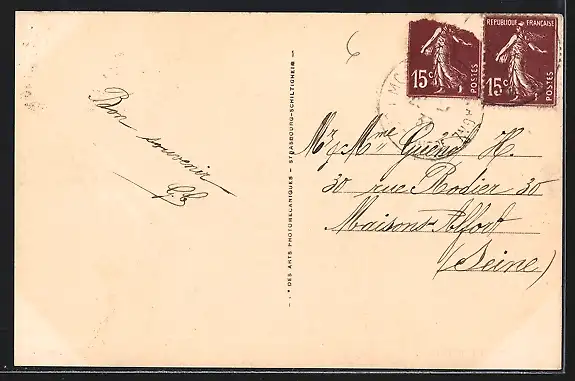 REPUBLIQUE FRANÇAISE
15c POSTES
15c POSTES
Bon souvenir
G.C
Mr & Mme Guénot H.
30 rue Rodier 30
Maisons-Alfort
(Seine)
Sté DES ARTS PHOTOMECANIQUES - STRASBOURG-SCHILTIGHEIM